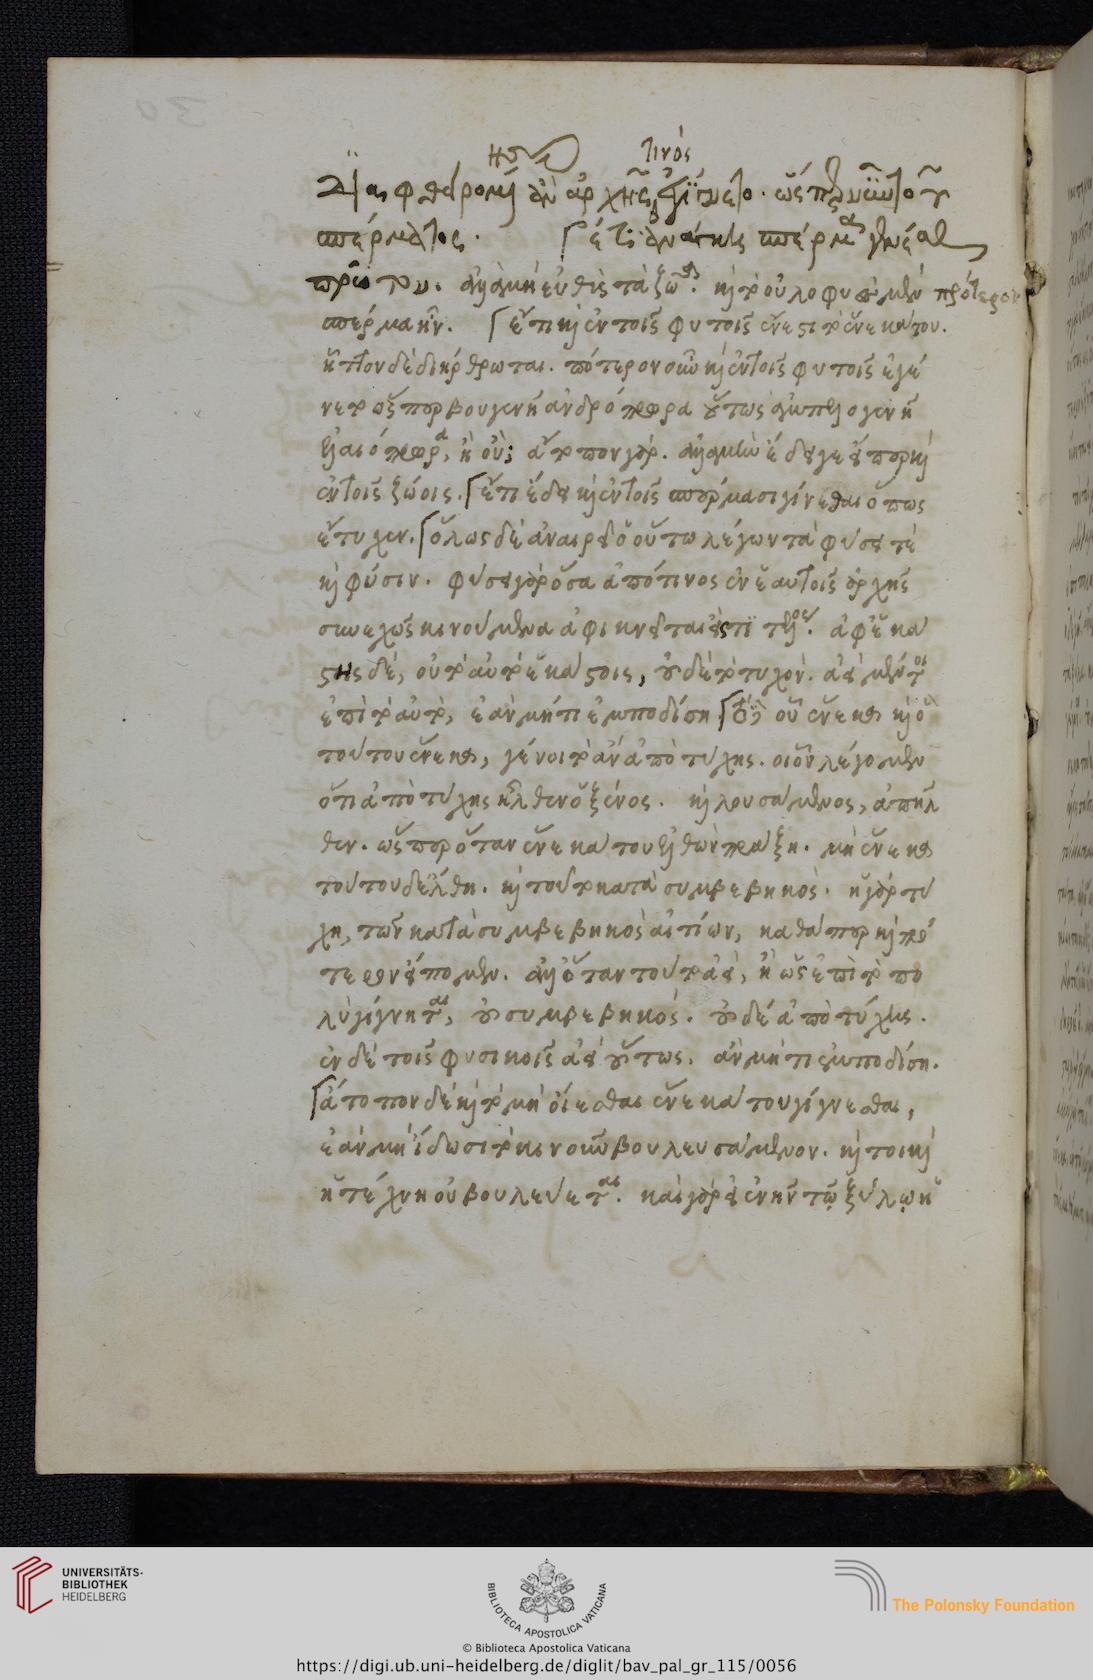 τινός
διαφθειρομένης ἂν ἀρχῆς ἐγίνετο. ὥσπερ νῦν τοῦ
σπέρματος. ἔτι ἀνάγκη σπέρμα γενέσθαι
πρῶτον. ἀλλὰ μὴ εὐθὺς τὰ ζῶα. καὶ τὸ οὐλοφυὲς μὲν πρότερον
σπέρμα ἦν. ἔτι καὶ ἐν τοῖς φυτοῖς ἔνεστι τὸ ἕνεκά του.
ἧττον δὲ διήρθρωται. πότερον οὖν καὶ ἐν τοῖς φυτοῖς ἐγέ
νετο ὥσπερ βουγενῆ ἀνδρόπρωρα οὕτως ἀμπελογενῆ
ἐλαιόπρωρα, ἢ οὔ; ἄτοπον γάρ. ἀλλὰ μὴν ἔδει γε εἴπερ καὶ
ἐν τοῖς ζώοις. ἔτι ἔδει καὶ ἐν τοῖς σπέρμασι γίνεσθαι ὅπως
ἔτυχεν. ὅλως δὲ ἀναιρεῖ ὁ οὕτω λέγων τὰ φύσει τὲ
καὶ φύσιν. φύσει γὰρ ὅσα ἀπό τινος ἐν ἑαυτοῖς ἀρχῆς
συνεχῶς κινούμενα ἀφικνεῖται εἴς τι τέλος. ἀφ' ἑκά
στης δὲ, οὐ τὸ αὐτὸ ἑκάστοις, οὐδὲ τὸ τυχόν. ἀεὶ μέντοι
ἐπὶ τὸ αὐτὸ, ἐὰν μή τι ἐμποδίση τὸ δὲ οὗ ἕνεκα καὶ ὃ
τούτου ἕνεκα, γένοιτο ἂν ἀπὸ τύχης. οἷον λέγομεν
ὅτι ἀπὸ τύχης ἦλθεν ὁ ξένος. καὶ λουσάμενος, ἀπῆλ
θεν. ὥσπερ ὅταν ἕνεκά του ἐλθὼν πράξη. μὴ ἕνεκα
τούτου δ' ἔλθη. καὶ τοῦτο κατὰ συμβεβηκός. ἡ γὰρ τύ
χη, τῶν κατὰ συμβεβηκὸς αἰτίων, καθάπερ καὶ πρό
τερον εἴπομεν. ἀλλ' ὅταν τοῦτο ἀεὶ, ἢ ὡς ἐπὶ τὸ πο
λὺ γίγνηται, οὐ συμβεβηκός. οὐδὲ ἀπὸ τύχης.
ἐν δὲ τοῖς φυσικοῖς ἀεὶ οὕτως. ἂν μή τι ἐμποδίση.
ἄτοπον δὲ καὶ τὸ μὴ οἴεσθαι ἕνεκά του γίγνεσθαι,
ἐὰν μὴ ἴδωσι τὸ κινοῦν βουλευσάμενον. καίτοι καὶ
ἡ τέχνη οὐ βουλεύεται. καὶ γὰρ εἰ ἐνῆν τῷ ξύλῳ ἡ
UNIVERSITÄTS-
BIBLIOTHEK
HEIDELBERG
BIBLIOTECA APOSTOLICA VATICANA
The Polonsky Foundation
© Biblioteca Apostolica Vaticana
https://digi.ub.uni-heidelberg.de/diglit/bav_pal_gr_115/0056